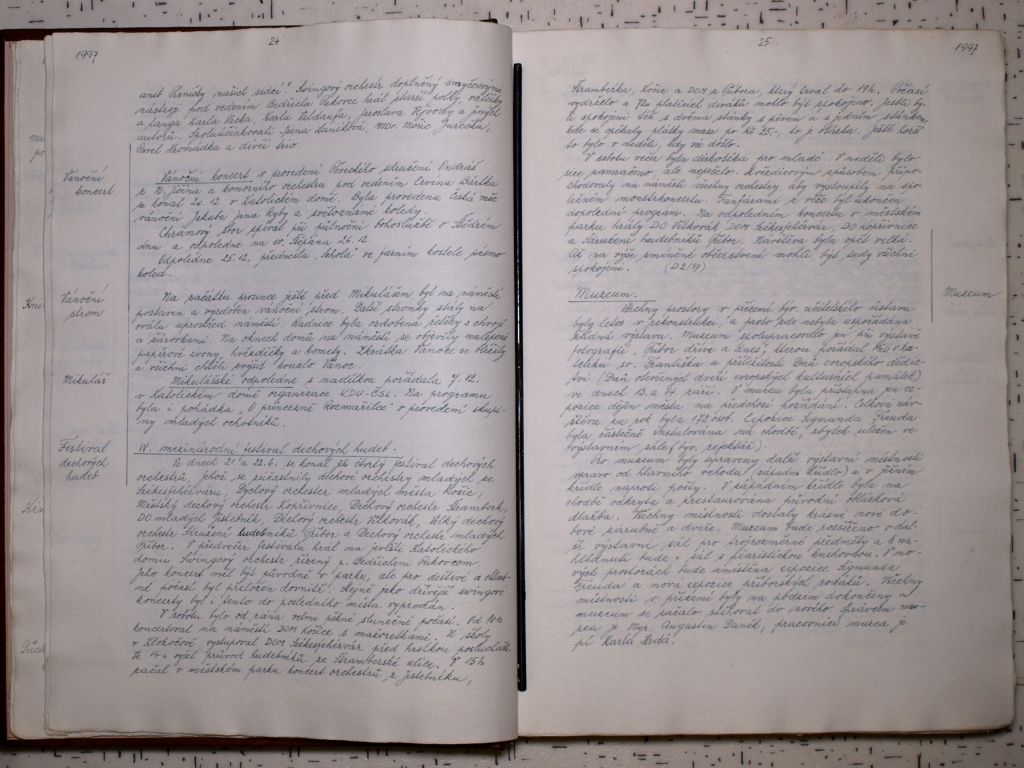 24
1997
anet Písničky našich srdcí". Swingový orchestr doplněný smyčcovými
nástroji pod vedením Bedřicha Pukovce hrál starší polky, valčíky
a tanga Karla Vacka, Karla Valdaufa, Jaroslava Křivody a jiných
autorů. Spoluúčinkovali Irena Daňková, MUDr. Mořic Jurečka,
Pavel Hromádka a dívčí trio.
Vánoční
koncert
Vánoční koncert v provedení Pěveckého sdružení Ondráš
z N. Jičína a komorního orchestru pod vedením Červena
se konal 20.12. v Katolickém domě. Byla provedena Česká mše
vánoční Jakuba Jana Ryby a světoznámé koledy.
Chrámový sbor zpíval při půlnoční bohoslužbě o Štědrém
dnu a odpoledne na sv. Štěpána 26.12.
Odpoledne 25.12. přednesla "schola" ve farním kostele pásmo
koled.
Vánoční
strom
Na začátku prosince ještě před Mikulášem byl na náměstí
postaven a vyzdoben vánoční strom. Další stromky stály na
oválu uprostřed náměstí. Radnice byla ozdobena řetězy z chvojí
a žárovkami. Na oknech domů na náměstí se objevily nalepené
papírové zvony, hvězdičky a komety. Zkrátka Vánoce se blížily
a všichni chtěli prožít kouzlo Vánoc.
Mikuláš
Mikulášské odpoledne s nadílkou pořádala 7.12.
v Katolickém domě organizace KDU-ČSL. Na programu
byla i pohádka "O princezně Rozmarilce" v provedení skupi-
ny mladých ochotníků.
Festival
dechových
hudeb
IV. mezinárodní festival dechových hudeb.
Ve dnech 21. a 22.6. se konal již čtvrtý festival dechových
orchestrů, jehož se zúčastnily dechové orchestry mladých ze
Székesfehérváru, Dychový orchester mladých města Košice,
Městský dechový orchestr Kopřivnice, Dechový orchestr Štramberk,
DO mladých Jistebník, Dechový orchestr Vítkovák, Velký dechový
orchestr Sdružení hudebníků Příbor a Dechový orchestr mladých
Příbor. V předvečer festivalu hrál na jevišti Katolického
domu Swingový orchestr řízený p. Bedřichem Pukovcem.
Jeho koncert měl být původně v parku, ale pro deštivé a chlad-
né počasí byl přeložen dovnitř. Stejně jako dřívější swingové
koncerty byl i tento do posledního místa vyprodán.
V sobotu bylo od rána velmi pěkné slunečné počasí. Od 10 h
koncertoval na náměstí DOM Košice s mažoretkami. U školy
v Klokočově vystupoval DOM Székesfehérvár před hrstkou posluchačů.
Ve 14 h vyšel průvod hudebníků ze Štramberské ulice. V 15 h
začal v městském parku koncert orchestrů z Jistebníku,
25
1997
Štramberka, Košic a DOM z Příbora, který trval do 19 h. Počasí
vydrželo a 720 platících diváků mohlo být spokojeno. Jestli by-
li spokojeni též s dvěma stánky s pivem a s jedním stánkem,
kde se čekaly plátky masa po Kč 25,-, to je otázka. Ještě horší
to bylo v neděli, kdy vše došlo.
V sobotu večer byla diskotéka pro mladé. V neděli bylo
sice zamračeno, ale nepršelo. Hvězdicovým způsobem připo-
chodovaly na náměstí všechny orchestry, aby vystoupily na spo-
lečném monstrkoncertu. Fanfárami z věže byl ukončen
dopolední program. Na odpoledním koncertu v městském
parku hrály DO Vítkovák, DOM Székesfehérvár, DO Kopřivnice
a Sdružení hudebníků Příbor. Návštěva byla opět velká.
Až na výše zmíněné občerstvení mohli být tedy všichni
spokojeni. (D 2/97)
Muzeum
Muzeum.
Všechny prostory v přízemí býv. učitelského ústavu
byly letos v rekonstrukci, a proto zde nebyla uspořádána
žádná výstava. Muzeum spolupracovalo při výstavě
fotografií "Příbor dříve a dnes", kterou pořádal v ko-
stelíku sv. Františka u příležitosti Dnů evropského dědic-
tví (Dnů otevřených dveří evropských kulturních památek)
ve dnech 13. a 14. září. V muzeu byla přístupna jen ex-
pozice dějin města na předchozí požádání. Celková náv-
štěva za rok byla 172 osob. Expozice Sigmunda Freuda
byla částečně instalována na chodbě, zbytek uložen ve
výstavním sále (býv. refektář).
Do muzea byly upraveny další výstavní místnosti
vpravo od hlavního vchodu (západní křídlo) a v jižním
křídle naproti pošty. V západním křídle byla na
chodbě odkryta a zrestaurována původní oblázková
dlažba. Všechny místnosti dostaly krásné nové do-
bové zárubně a dveře. Muzeum bude rozšířeno o dal-
ší výstavní sál pro trojrozměrné předměty a k na-
hlédnutí bude i sál s piaristickou knihovnou. V no-
vých prostorách bude umístěna expozice Sigmunda
Freuda a nová expozice příborských rodáků. Všechny
místnosti v přízemí byly na podzim dokončeny a
muzeum se začalo stěhovat do nového. Správcem mu-
zea je Mgr. Augustin Daněk, pracovnicí muzea je
pí Karla